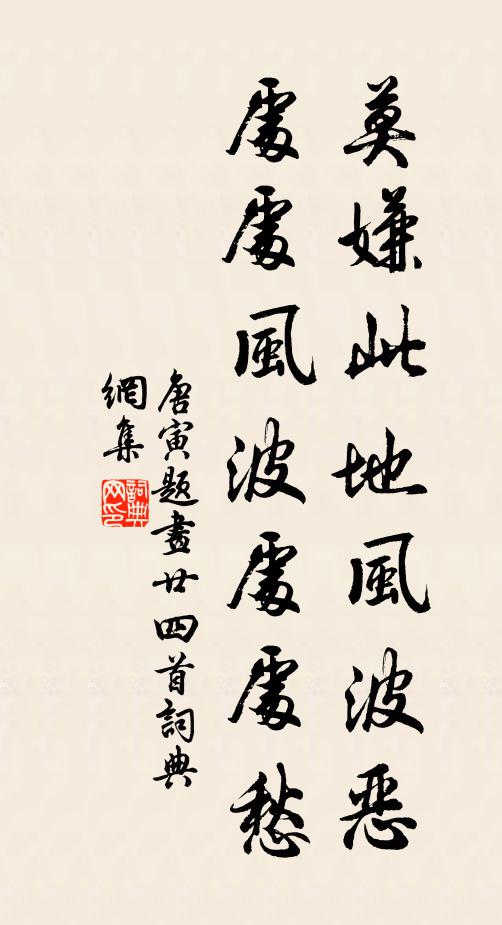 莫嫌此地風波惡
處處風波處處愁
唐寅題畫廿四首詞典
網集
詞典
网印